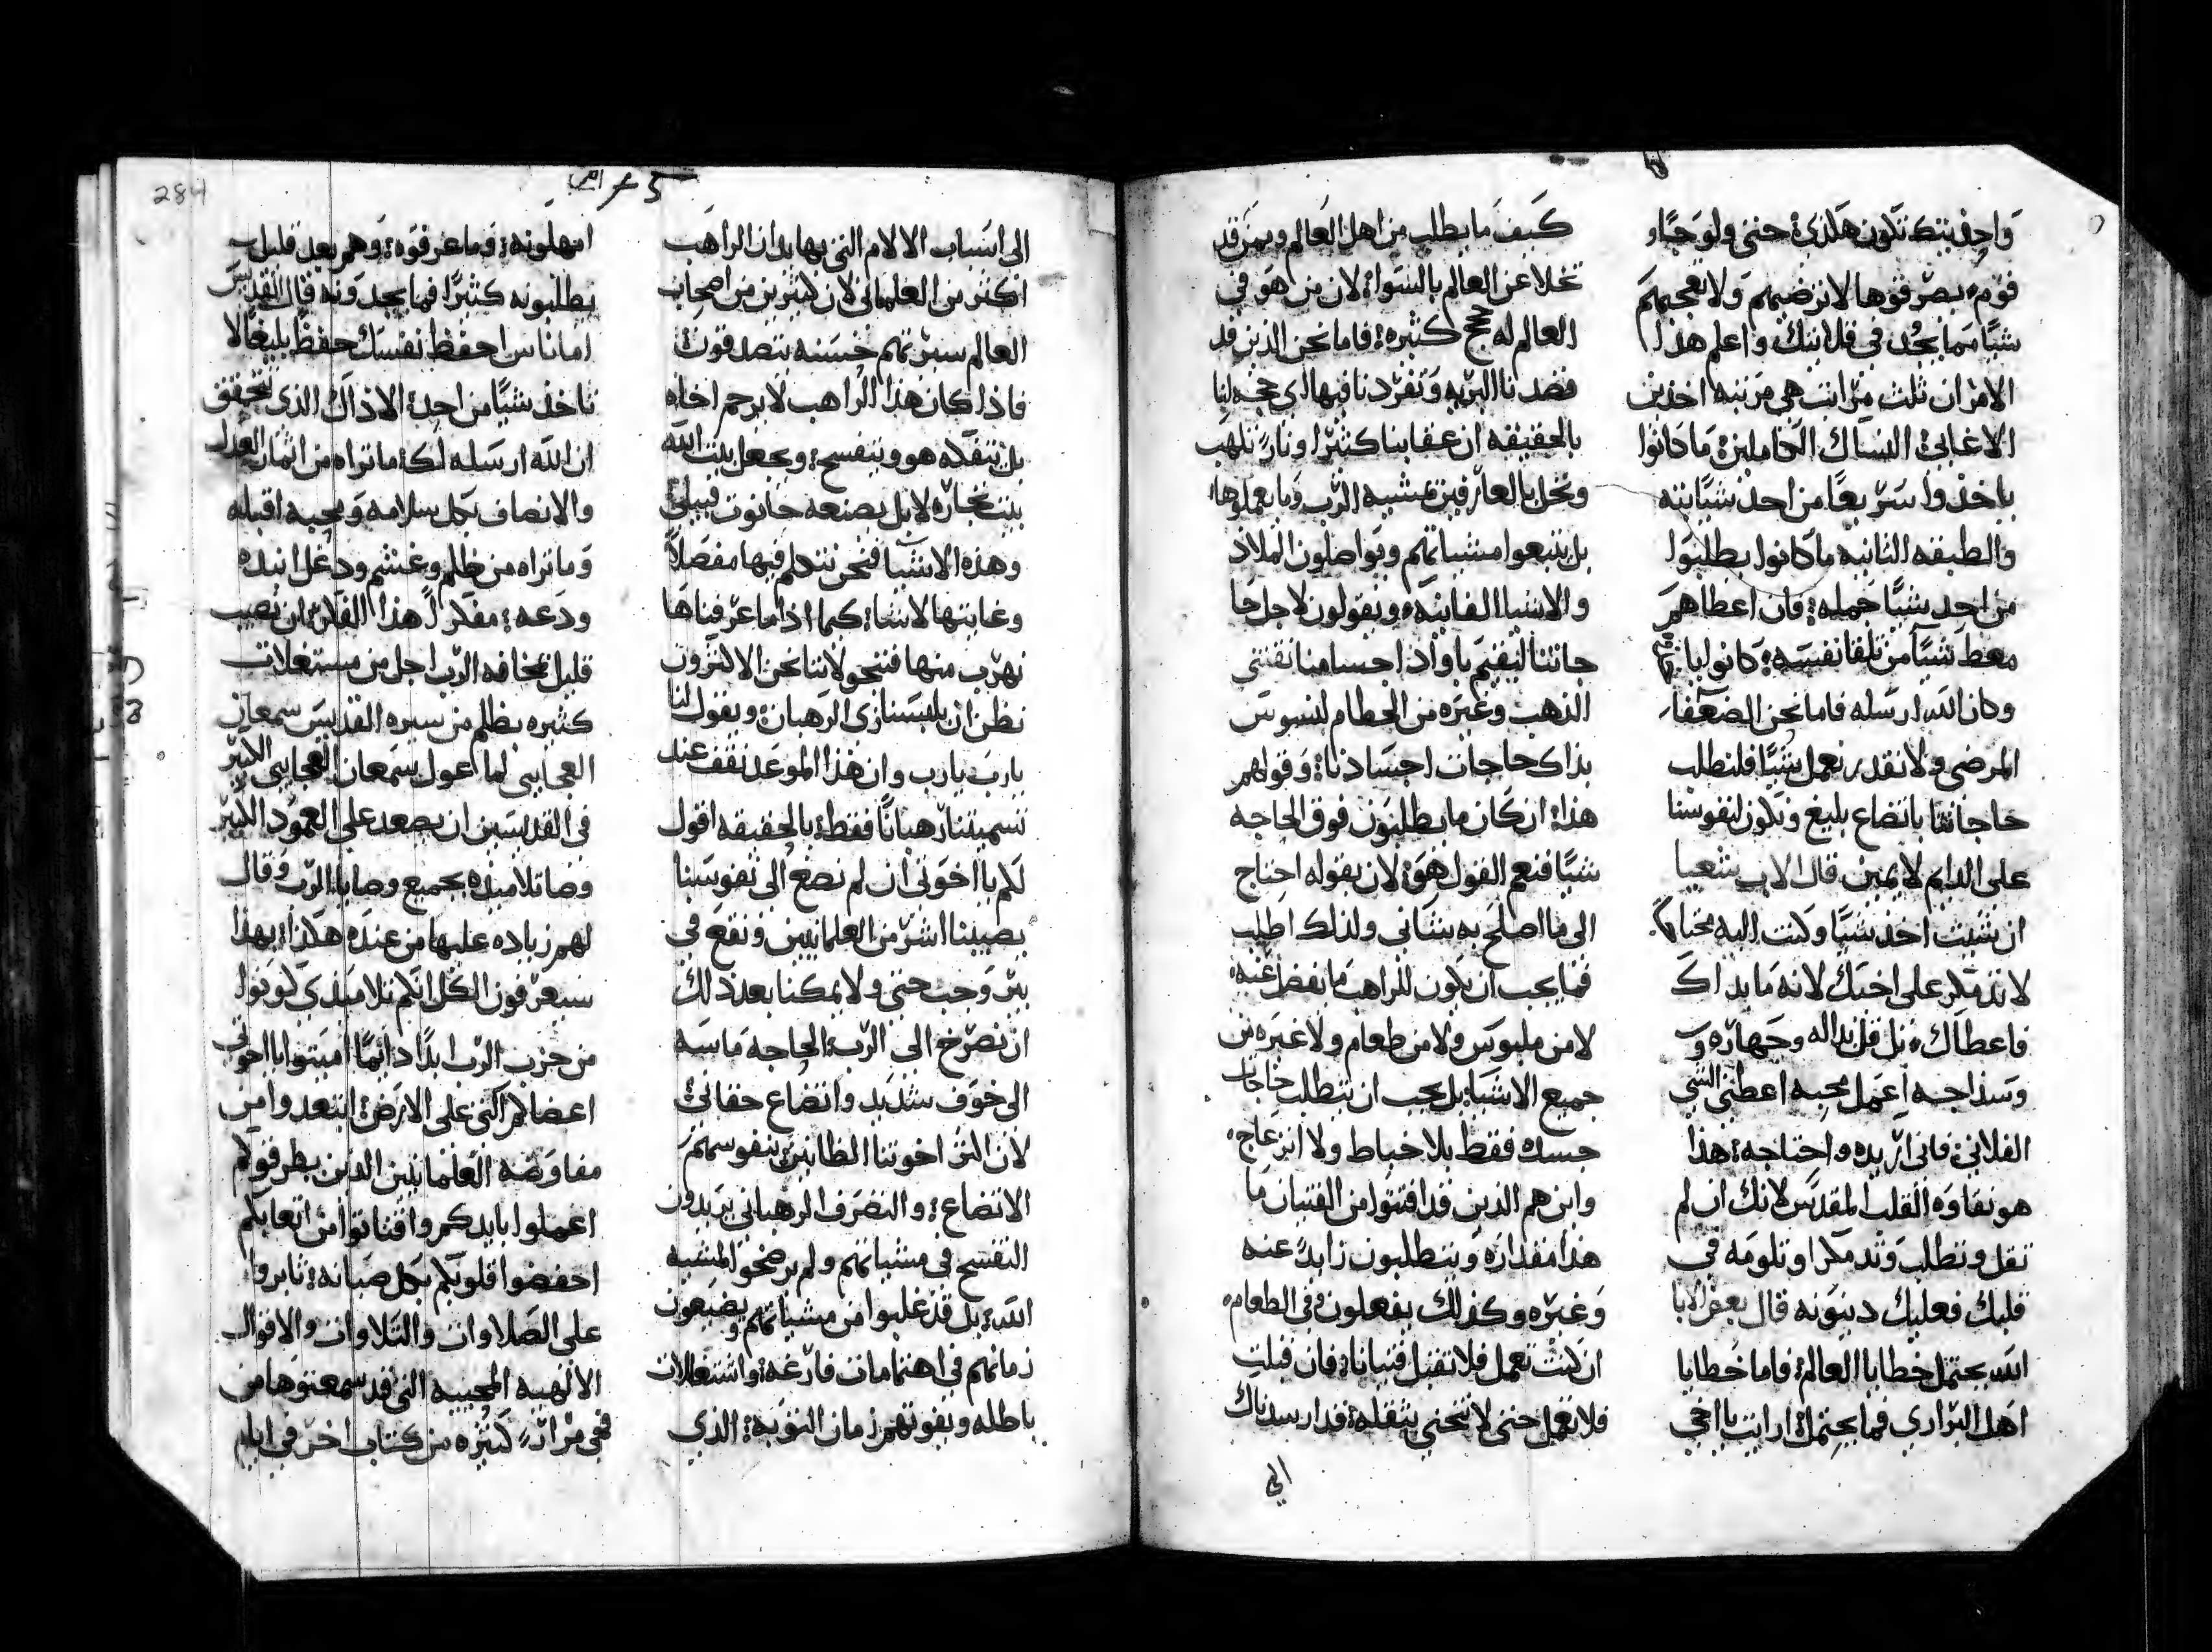 واحده بتك نكون هكذي حتى ولو جاو
قوم بصرفوها لا ترضيهم ولا يعجبهم
شيًا مما يجد في قلايتك واعلم هذا
الامر ان ثلث مراتب هي مرتبه اخذين
الاغابي النساك الكاملين ما كانوا
ياخذوا سريعًا من احد شيًا بته
والطبقه الثانيه ما كانوا يطلبوا
من احد شيًا جمله فان اعطاهم
معط شيًا من تلقا نفسه كانوا يا
وكان الله ارسله فاما نحن الضعفا
المرضى ولا نقدر نعمل شيًا فلنطلب
حاجاتنا باتضاع بليغ ونكون لنفوسنا
على الدايم لايمين قال الاب شعيا
ان شيت اخذ شيًا وكنت اليه محتاج
لا تدمكر على اخيك لانه ما بداك
فاعطاك بل قل بداله وجهاره
وسذاجه اعمل محبه اعطني الشي
الفلاني فاني اريده واحتاجه هذا
هو نقاوه القلب المقدس لانك ان لم
تقل وتطلب وتدمكر او تلومه في
قلبك فعليك دينونه قال بعض الابا
الله يحتمل خطايا العالم فاما خطايا
اهل البراري فما يحتمل ارايت يا اخي
كيف ما يطلب من اهل العالم وممن قد
تخلا عن العالم بالسوا لان من هو في
العالم له حجج كثيره فاما نحن الذين قد
قصدنا البريه وتفردنا فيها اي حجه لنا
بالحقيقه ان عقابنا كثيرا ونار تلهب
ونحل بالعارفين مشيه الرب وما يعملوها
بل يتبعوا مشياتهم ويواصلون الملاذ
والاشيا الفانيه ويقولون لاجل حا
جاتنا ليقيم باواد اجسامنا نقتني
الذهب وغيره من الحطام لنسوس
بذاك حاجات اجسادنا وقولهم
هذا ان كان ما يطلبون فوق الحاجه
شيًا فنعم القول هو لان بقوله احتاج
الى ما اصلح به شاني ولذلك اطلب
فما يجب ان يكون للراهب ما يفضل عنه
لا من ملبوس ولا من طعام ولا غيره من
جميع الاشيا بل يجب ان يتطلب حاجات
جسده فقط بلا خباط ولا انزعاج
واين هم الذين قد اقتنوا من القنيان ما
هذا مقداره ويتطلبون زايدً عنه
وغيره وكذلك يفعلون في الطعام
ان كنت تعمل فلا تقبل قنيانا فان قبلت
فلا تعمل حتى لا تنحني بثقله قد ارسدناك
الي
الى اسباب الالام التي بها يدان الراهب
اكثر من العلماني لان كثيرين من اصحاب
العالم سيرتهم حسنه يتصدقون
فاذا كان هذا الراهب لا يرحم اخاه
بل يتفكه هو ويتفسح ويجعل بيت الله
بيت تجاره لا بل يصنعه حانوت
وهذه الاشيا فنحن نتكلم فيها مفصلًا
وغايتها لاشيا كيما اذا ما عرفناها
نهرب منها فننجو لاننا نحن الاكثرون
نظن ان يلبسنا زي الرهبان ويقول لنا
يارب يارب وان هذا الموعد نقف عند
تسميتنا رهبانًا فقط بالحقيقه اقول
لكم يا اخوتي ان لم نصغ الى نفوسنا
يصيبنا اشر من العلمانيين ونقع في
بير وجب حتى ولا يمكنا بعد ذلك
ان نصرخ الى الرب الحاجه ماسه
الى خوف شديد واتضاع حقاني
لان اكثر اخوتنا الظانين بنفوسهم
الاتضاع والتصرف الرهباني يريدون
التفسح في مشياتهم ولم يرضخوا لمشيه
الله بل قد غلبوا من مشياتهم ويضيعون
زمانهم في اهتمامات فارغه واشتغالات
باطله ويفوتهم زمان التوبه الذي
امهلونه وما عرفوه وهم بعد قليل
يطلبونه كثيرًا فما يجدونه قال القديس
اماناس احفظ نفسك حفظ بليغًا لا
تاخذ شيًا من احد الا ذاك الذي تتحقق
ان الله ارسله لك ما تراه من اثمار العدل
والانصاف بكل سلامه ومحبه اقبله
وما تراه من ظلم وغشم ودغل انبذه
ودعه مفكرً هذا الفكر ان نصيب
قليل بمخافه الرب اجل من مستغلات
كثيره بظلم من سيره القديس سمعان
العجايبي لما اعول سمعان العجايبي الكبير
في القديسين ان يصعد على العمود الكبير
وصا تلاميذه بجميع وصايا الرب وقال
لهم زياده عليها من عنده هكذا بهذا
سيعرفون الكل انكم تلاميذي كونوا
من حزب الرب ابدًا دايمًا اميتوا يا اخوتي
اعضاكم التي على الارض ابتعدوا من
مفاوضه العلمانيين الذين يطرقوكم
اعملوا بايديكم واقتاتوا من اتعابكم
احفضوا قلوبكم بكل صيانه ثابروا
على الصلاوات والتلاوات والاقوال
الالهيه المحييه التي قد سمعتوها من
فمي مرارً كثيره من كتاب اخر في ايام